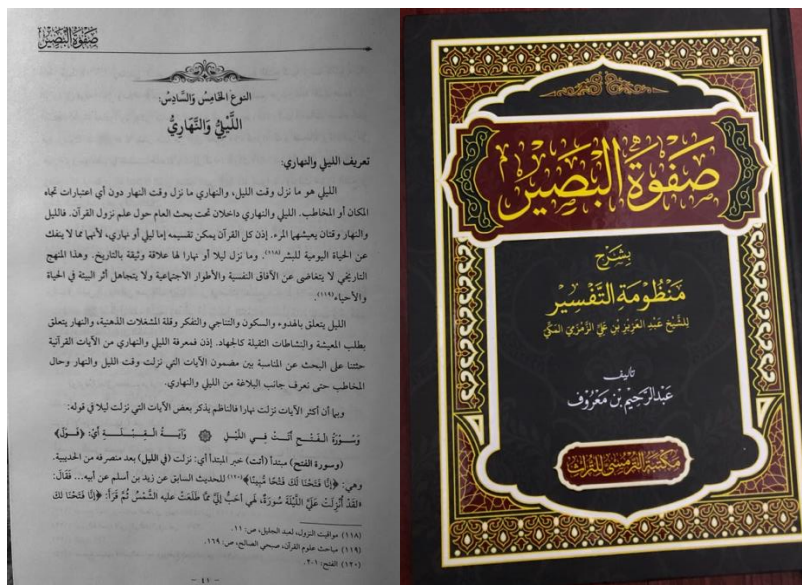 صفوة البصير
النوع الخامس والسادس:
اللَّيْلِيُّ والنَّهَارِيُّ
تعريف الليلي والنهاري:
الليلي هو ما نزل وقت الليل، والنهاري ما نزل وقت النهار دون أي اعتبارات تجاه
المكان أو المخاطب. الليلي والنهاري داخلان تحت بحث العام حول علم نزول القرآن. فالليل
والنهار وقتان يعيشهما المرء. إذن كل القرآن يمكن تقسيمه إما ليلي أو نهاري، لأنهما مما لا ينفك
عن الحياة اليومية للبشر(١١٨). وما نزل ليلا أو نهارا لها علاقة وثيقة بالتاريخ. وهذا المنهج
التاريخي لا يتغاضى عن الآفاق النفسية والأطوار الاجتماعية ولا يتجاهل أثر البيئة في الحياة
والأحياء(١١٩).
الليل يتعلق بالهدوء والسكون والتناجي والتفكر وقلة المشغلات الذهنية، والنهار يتعلق
بطلب المعيشة والنشاطات الثقيلة كالجهاد. إذن فمعرفة الليلي والنهاري من الآيات القرآنية
حثتنا على البحث عن المناسبة بين مضمون الآيات التي نزلت وقت الليل والنهار وحال
المخاطب حتى نعرف جانب البلاغة من الليلي والنهاري.
وبما أن أكثر الآيات نزلت نهارا فالناظم يذكر بعض الآيات التي نزلت ليلا في قوله:
وَسُورَةُ الْفَتْحِ أَتَتْ فِي اللَّيْلِ ۞ وَآيَةُ الْقِبْلَةِ أَيْ: ﴿فَوَلِّ﴾
(وسورة الفتح) مبتدأ (أتت) خبر المبتدأ أي: نزلت (في الليل) بعد منصرفه من الحديبية.
وهي: ﴿إِنَّا فَتَحْنَا لَكَ فَتْحًا مُّبِينًا﴾(١٢٠) للحديث السابق عن زيد بن أسلم عن أبيه... فَقَالَ:
«لَقَدْ أُنْزِلَتْ عَلَيَّ اللَّيْلَةَ سُورَةٌ، لَهِيَ أَحَبُّ إِلَيَّ مِمَّا طَلَعَتْ عليه الشَّمْسُ ثُمَّ قَرَأَ: ﴿إِنَّا فَتَحْنَا لَكَ
(١١٨) مواقيت النزول، لعبد الجليل، ص: ١١.
(١١٩) مباحث علوم القرآن، صبحي الصالح، ص: ١٦٩.
(١٢٠) الفتح: ١-٢.
- ٤١ -
صَفْوَةُ البَصِيْرِ
بِشَرْحِ
مَنْظُومَةِ التَّفْسِيْرِ
لِلشَّيْخِ عَبْدِ العَزِيْزِ بْنِ عَلِيٍّ الزَّمْزَمِيِّ المَكِّيِّ
تأليف
عَبْدِ الرَّحِيْمِ بْنِ مَعْرُوْفٍ
مكتبة الترمسي للتراث